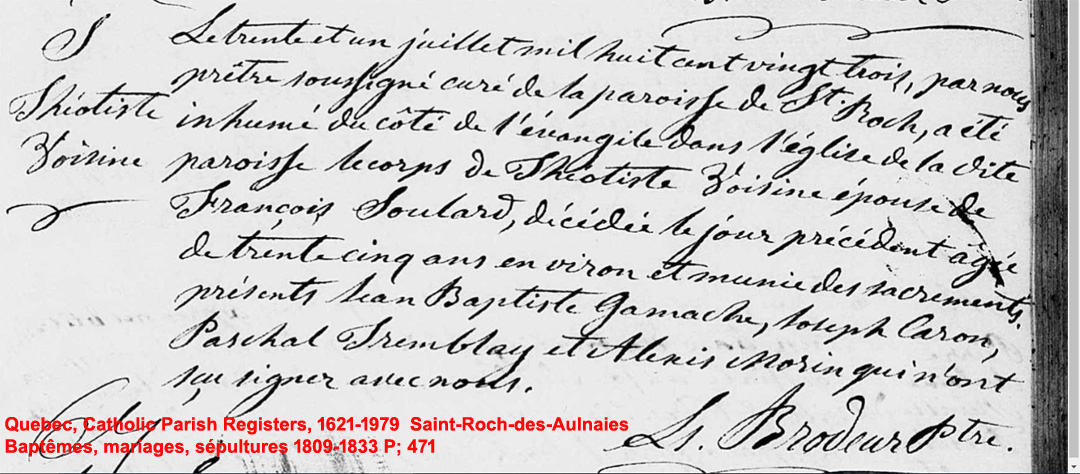 S
Théotiste
Voisine
Le trente et un juillet mil huit cent vingt trois, par nous
prêtre soussigné curé de la paroisse de St. Roch, a été
inhumé du côté de l'évangile dans l'église de la dite
paroisse le corps de Théotiste Voisine épouse de
François Soulard, décédée le jour précédent agée
de trente cinq ans environ et munie des sacrements.
présents Jean Baptiste Gamache, Joseph Caron,
Paschal Tremblay et Alexis Morin qui n'ont
sçu signer avec nous.
Ls. Brodeur Ptre.
Quebec, Catholic Parish Registers, 1621-1979 Saint-Roch-des-Aulnaies
Baptêmes, mariages, sépultures 1809-1833 P; 471